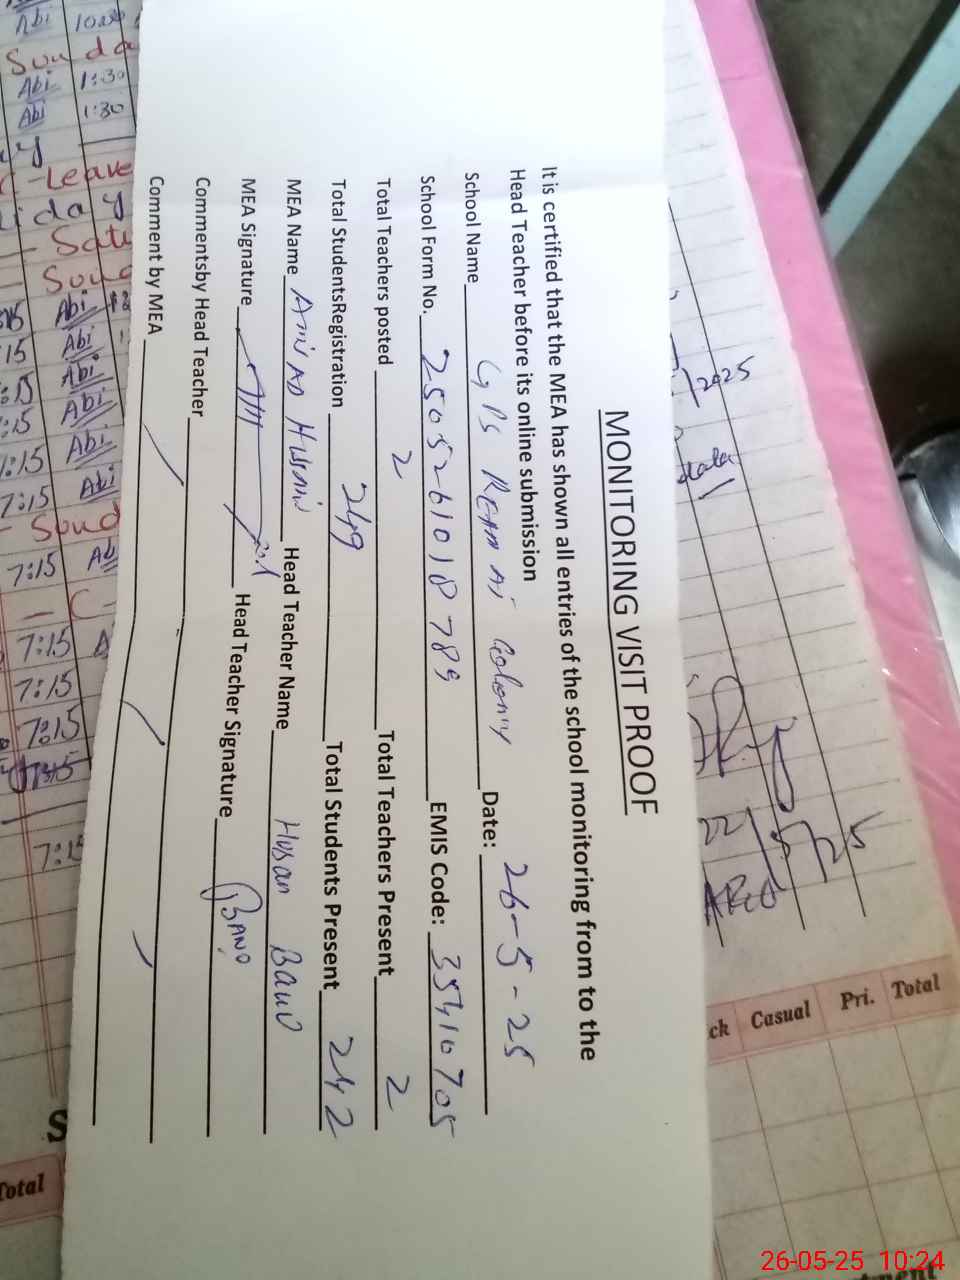 MONITORING VISIT PROOF
It is certified that the MEA has shown all entries of the school monitoring from to the
Head Teacher before its online submission
School Name GPS Colony Date: 26-5-25
School Form No. 2505261018789 EMIS Code: 35410705
Total Teachers posted 2 Total Teachers Present 2
Total StudentsRegistration 249 Total Students Present 242
MEA Name Head Teacher Name Husan Bano
MEA Signature Head Teacher Signature BANO
Commentsby Head Teacher
Comment by MEA
/2025
22/5/25
AEO
ck Casual Pri. Total
Abi
Sunda
Abi 1:30
Abi 1:30
-Leave
day
Satu
Sund
15 Abi
:15 Abi
:15 Abi
:15 Abi
7:15 Abi
7:15 Abi
- Sund
7:15 Ab
- C-
7:15 A
7:15
7:15
7:15
7:15
S
Total
26-05-25 10:24